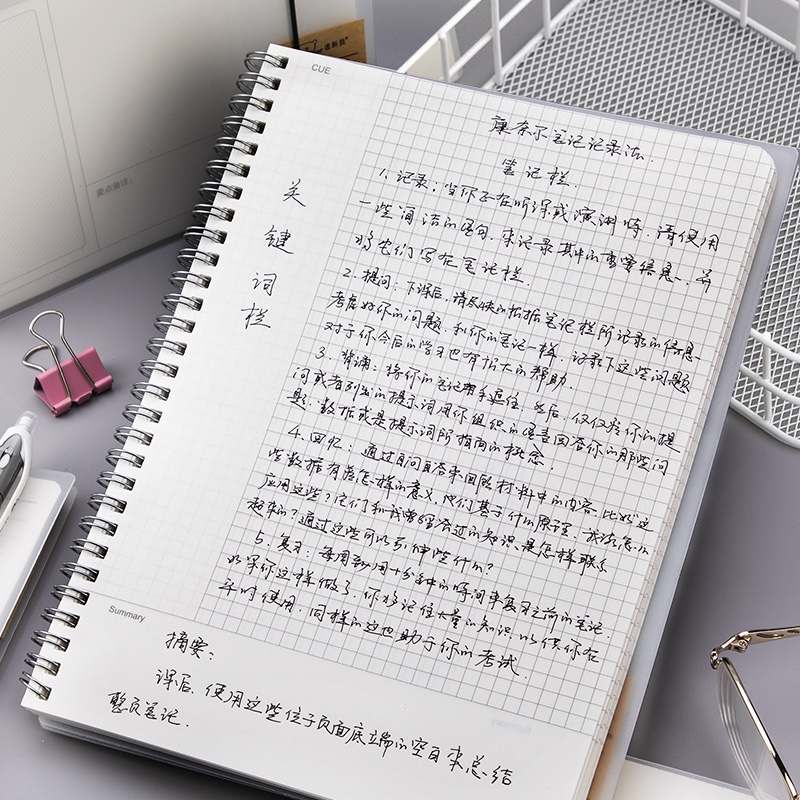 CUE
康奈尔笔记记录法.
笔记栏.
关
键
词
栏
1. 记录: 当你正在听课或演讲时, 请使用
一些简洁的语句, 来记录其中的重要信息, 并
将它们写在笔记栏.
2. 提问: 下课后, 请尽快的根据笔记栏所记录的信息
考虑好你的问题. 和你的笔记一样, 记录下这些问题
对于你今后的学习也有极大的帮助.
3. 背诵: 将你的笔记用手遮住, 然后, 仅仅看你的提
问或者列出的提示词用你组织的语言回答你的那些问
题、数据或是提示词所指向的概念.
4. 回忆: 通过自问自答来回顾材料中的内容. 比如 这
些数据有着怎样的意义, 他们基于什么原理, 我该怎么
应用这些? 它们和我曾经看过的知识是怎样联系
起来的? 通过这些可以引伸些什么?
5. 复习: 每周要用十分钟的时间来复习之前的笔记.
如果你这样做了, 你将记住大量的知识 以供你在
平时使用. 同样的这也助于你的考试.
Summary
摘要:
课后, 使用这些位于页面底端的空白来总结
整页笔记.
要点备注: